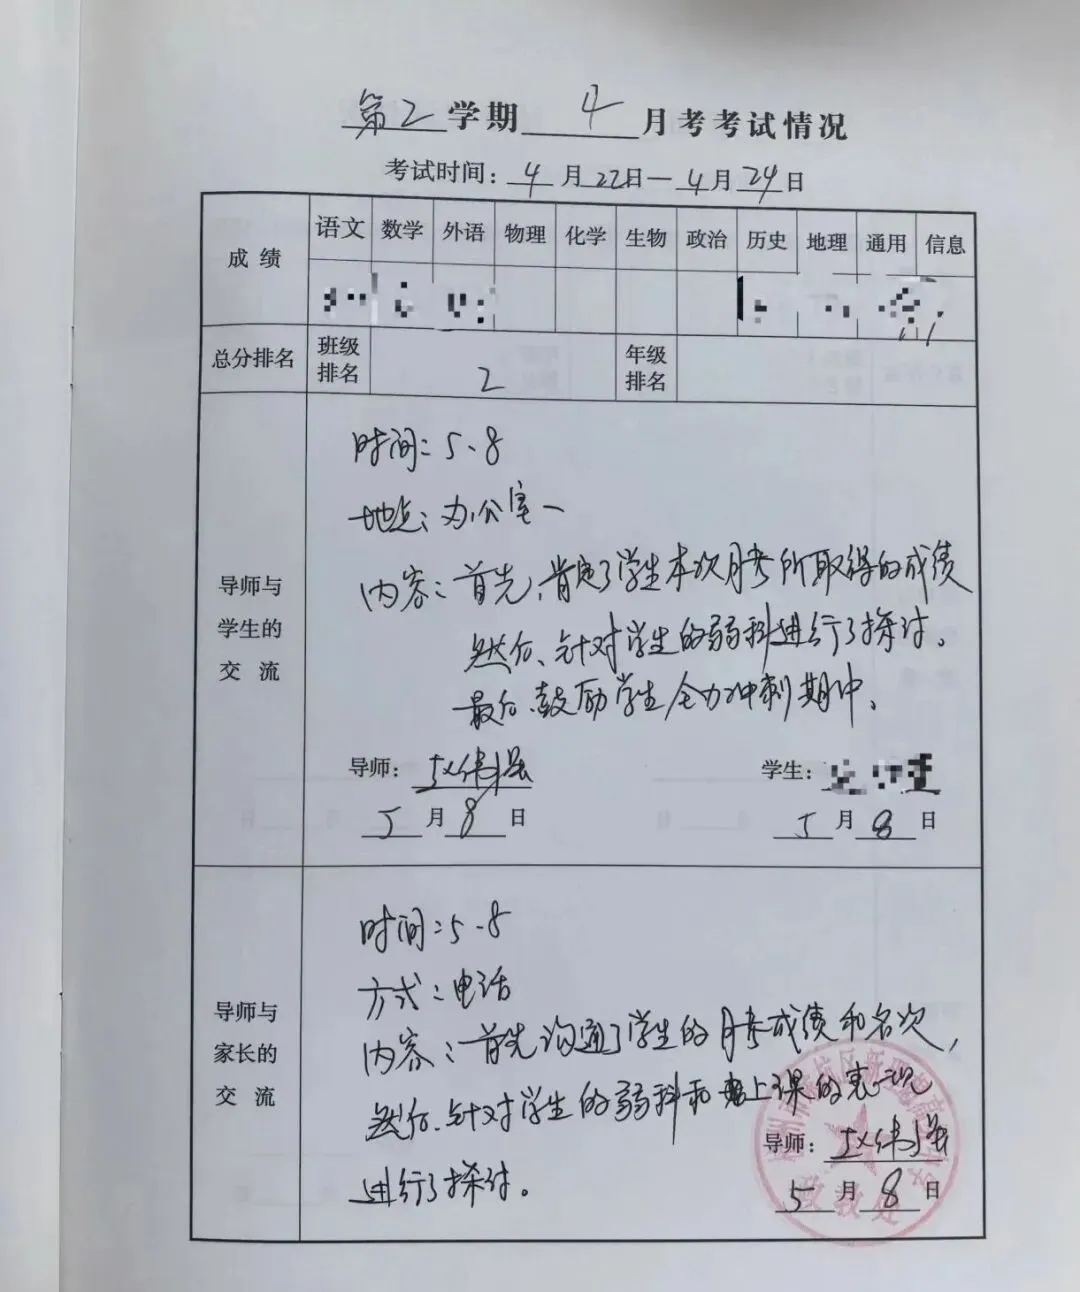 第2学期 4 月考考试情况
考试时间：4月22日—4月24日
成绩 语文 数学 外语 物理 化学 生物 政治 历史 地理 通用 信息
总分排名 班级排名 2 年级排名
导师与学生的交流
时间：5.8
地点：办公室一
内容：首先，肯定了学生本次月考所取得的成绩
然后、针对学生的弱科进行了探讨。
最后、鼓励学生全力冲刺期中。
导师： 学生：
5月8日 5月8日
导师与家长的交流
时间：5.8
方式：电话
内容：首先沟通了学生的月考成绩和名次，
然后、针对学生的弱科和上课的表现
导师：
进行了探讨。
5月8日
政教处